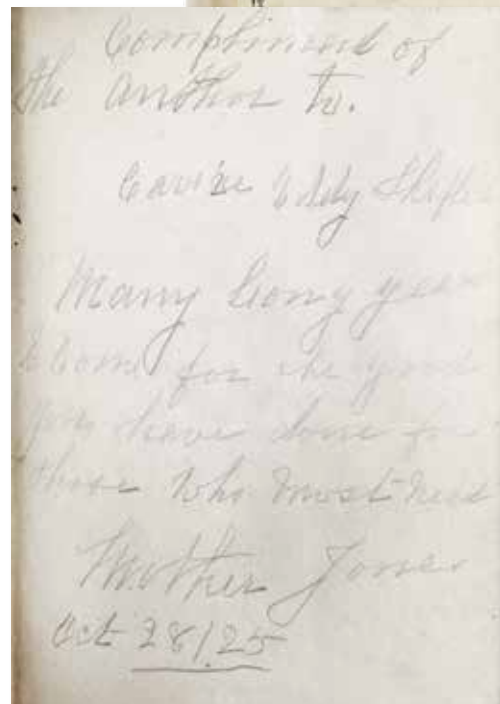 Compliment of
the Author to.
Eddy
Many Long years
to Come for the good
you have done for
those who most need
Mother Jones
Oct 28/25